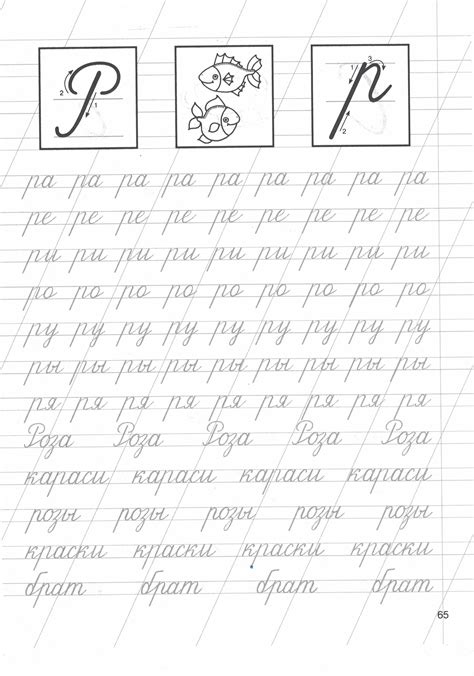 2 Р 1 1 р 3 2
ра ра ра ра ра ра ра ра ра
ре ре ре ре ре ре ре ре ре
ри ри ри ри ри ри ри ри ри
ро ро ро ро ро ро ро ро ро
ру ру ру ру ру ру ру ру ру
ры ры ры ры ры ры ры ры ры
ря ря ря ря ря ря ря ря ря
Роза Роза Роза Роза Роза
караси караси караси караси
розы розы розы розы розы
краски краски краски краски
брат брат брат брат
65